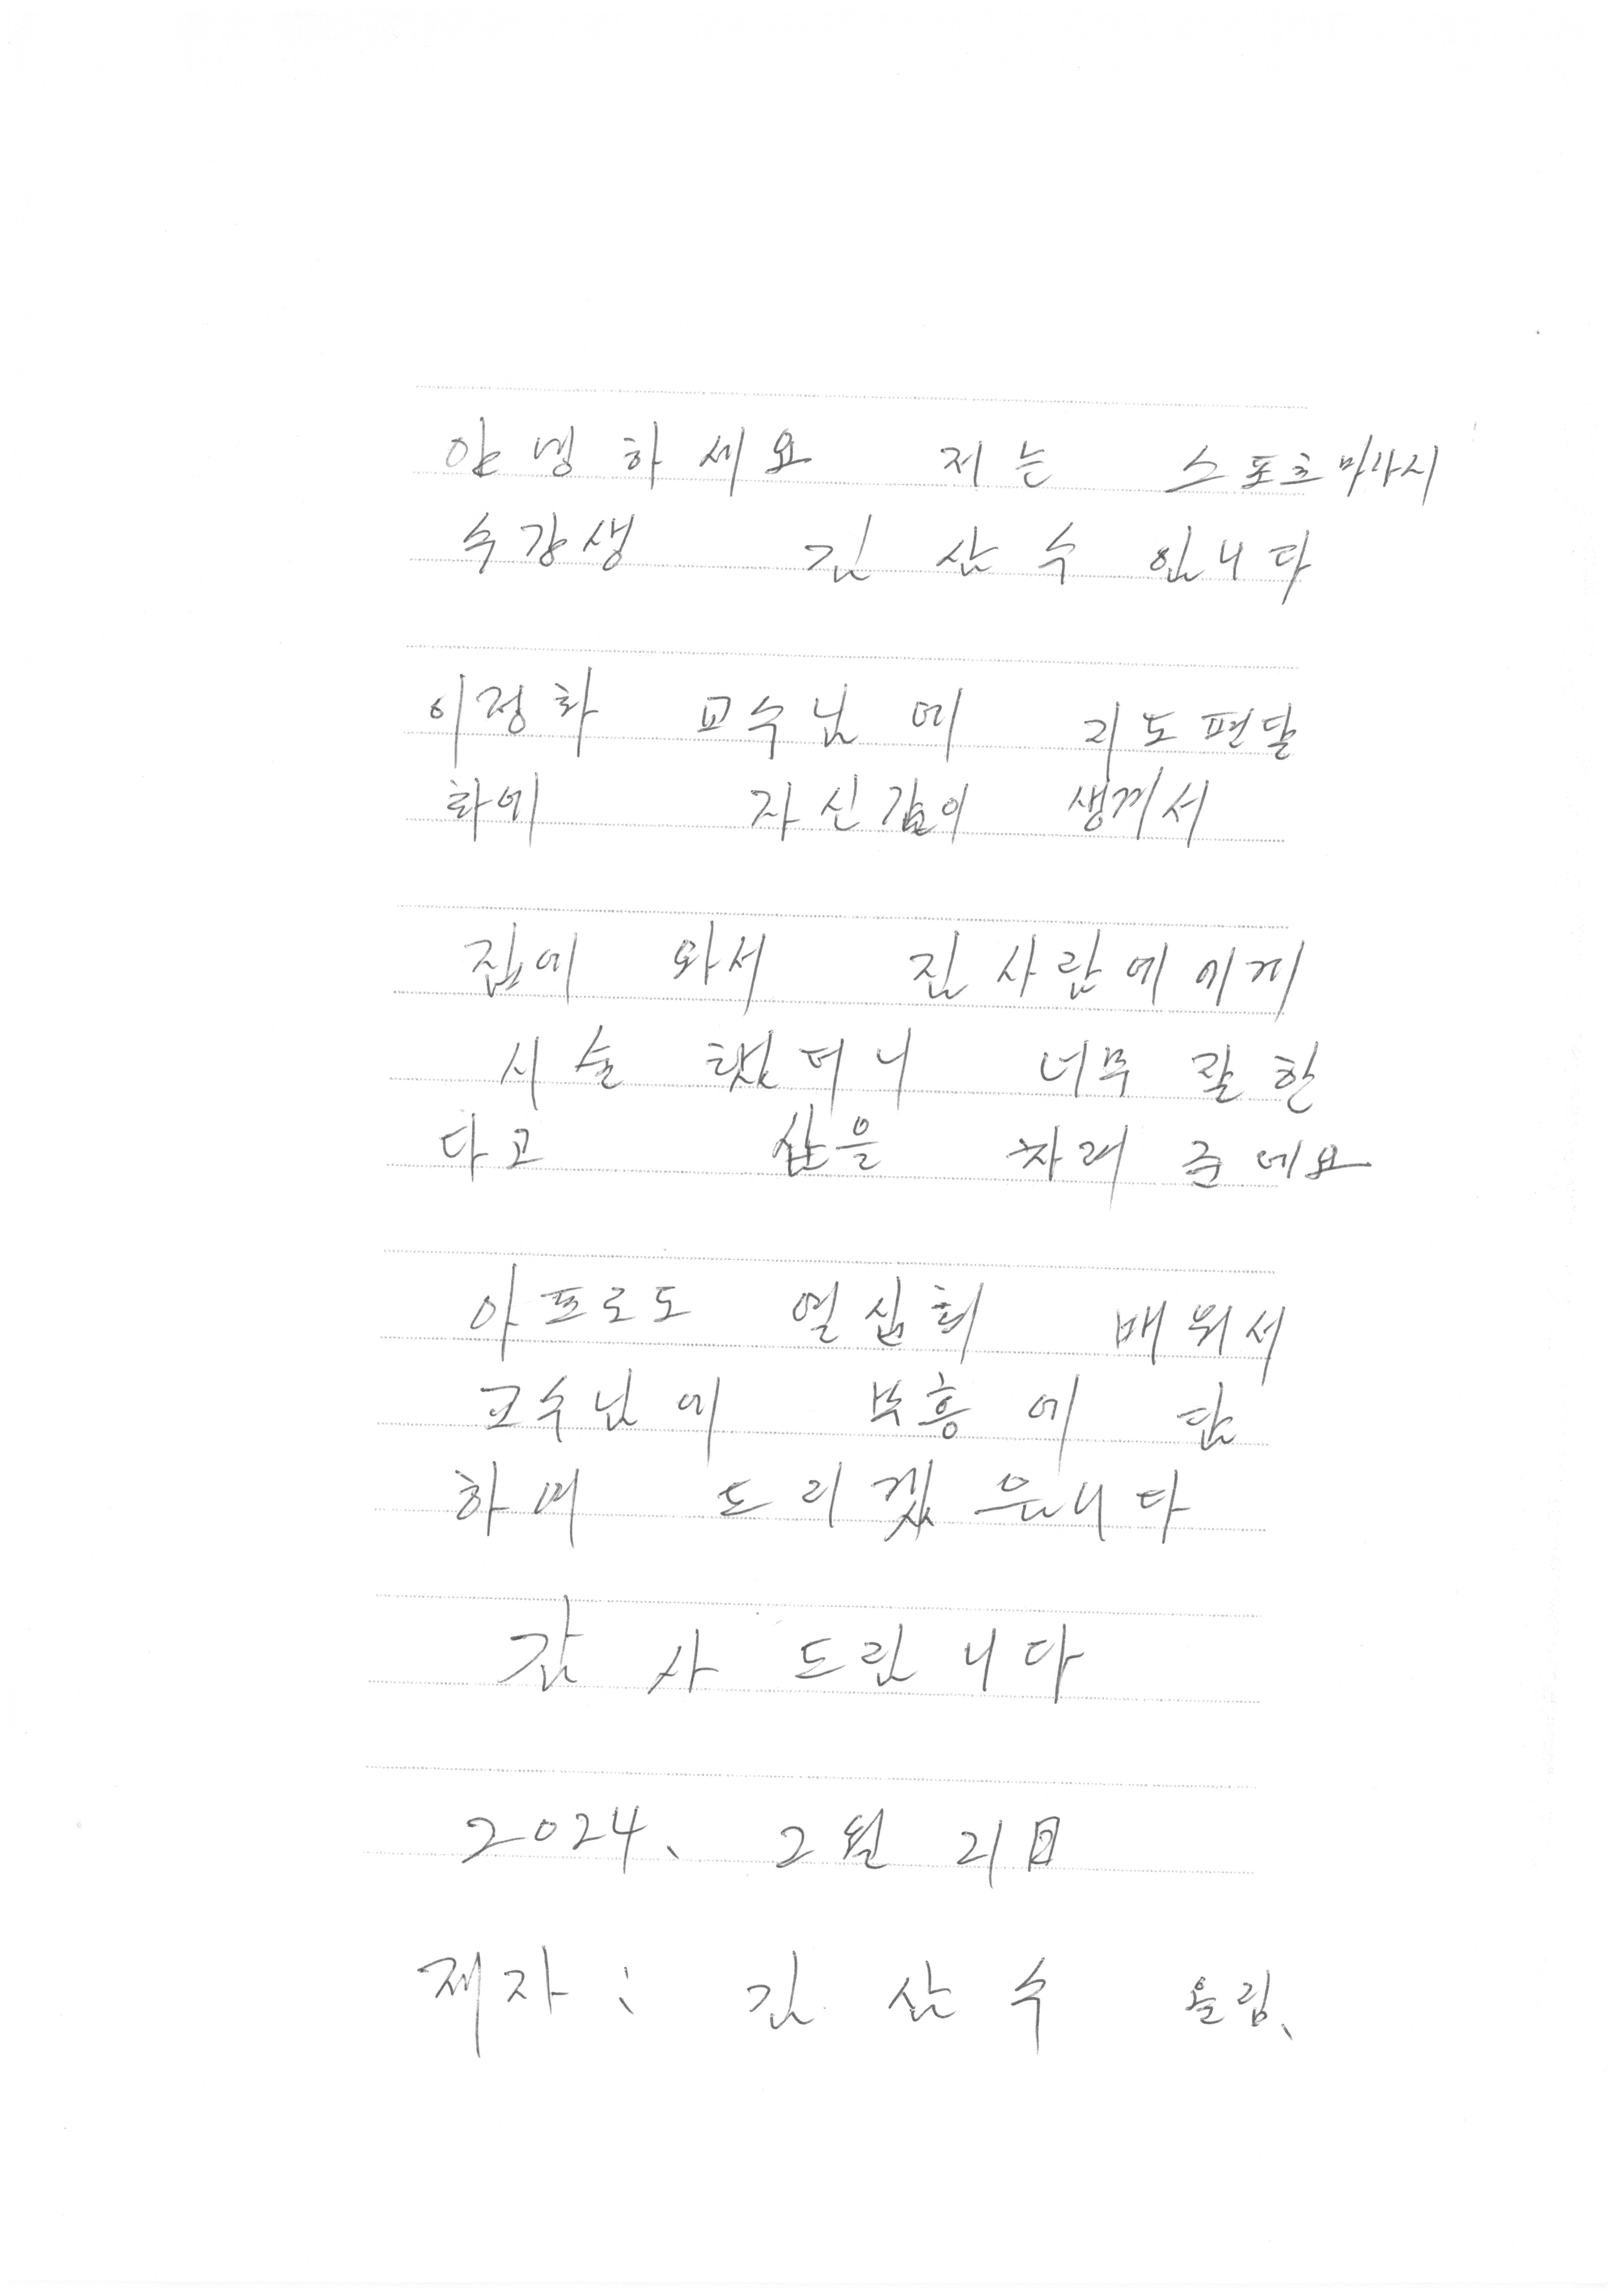 안녕하세요 저는 스포츠마사지
수강생 김삼수 입니다
이정화 교수님에 지도편달
화에 자신감이 생겨서
집에 와서 집사람에에게
시술 했더니 너무 잘한
다고 상을 차려 주네요
아프로도 열심희 배워서
교수님에 부흥에 답
하며 드리겠읍니다
감사드립니다
2024、 2월 21日
제자 : 김 삼 수 올림、